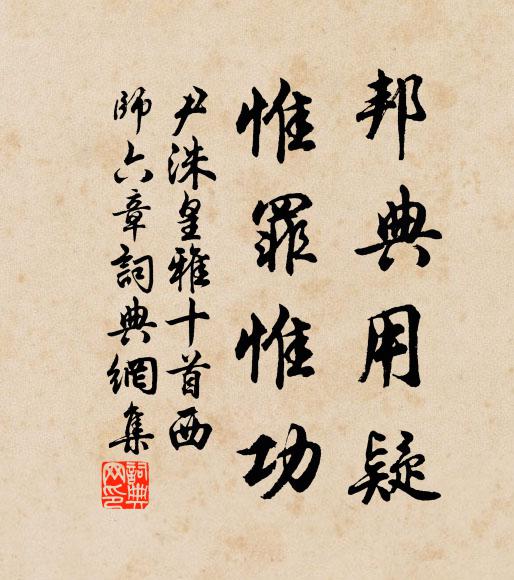 邦典用疑
惟罪惟功
尹洙皇雅十首西
師六章詞典網集
詞典网印